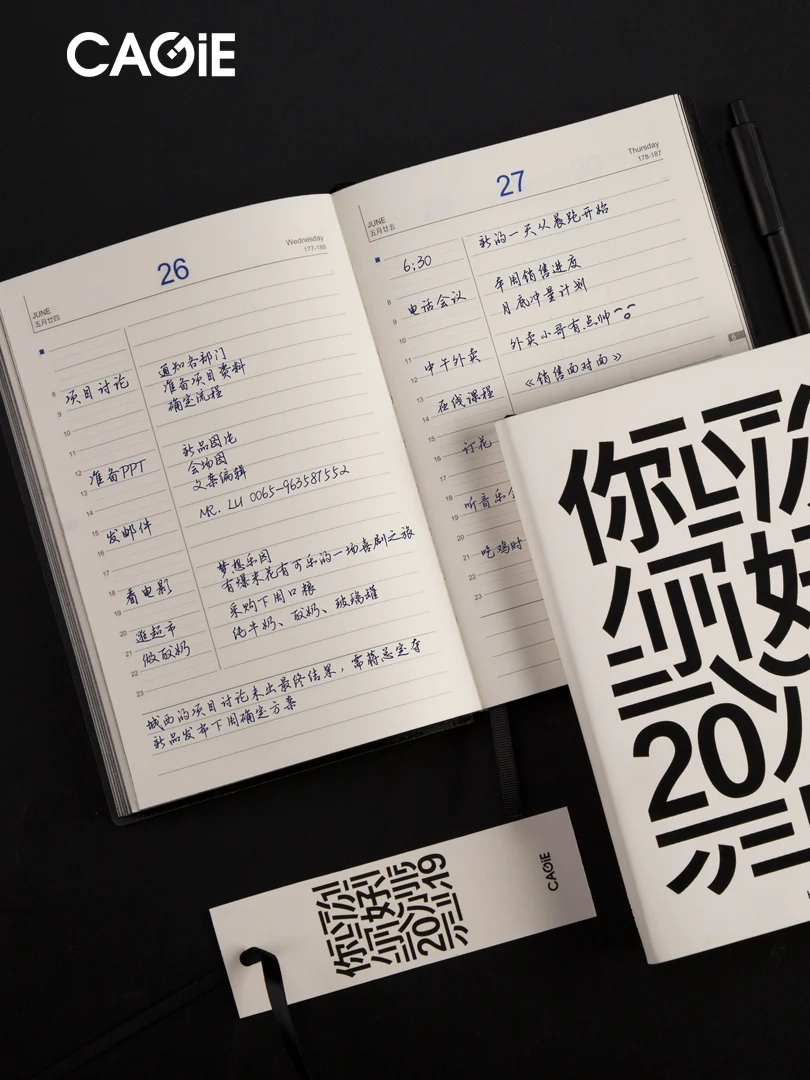 CAGiE
26
Wednesday
177-188
JUNE
五月廿四
8
项目讨论
通知各部门
准备项目资料
确定流程
9
10
11
12
准备PPT
新品图片
会场图
文案编辑
13
14
15
发邮件
MR. LU 0065-963587552
16
17
18
看电影
梦想乐园
有爆米花有可乐的一场喜剧之旅
19
20
逛超市
采购下周口粮
21
做酸奶
纯牛奶、酸奶、玻璃罐
22
23
城西的项目讨论未出最终结果，需蒋总定夺
新品发布下周确定方案
27
Thursday
178-187
JUNE
五月廿五
6:30
新的一天从晨跑开始
8
电话会议
年周销售进度
月底冲量计划
9
10
11
中午外卖
外卖小哥有点帅
12
13
在线课程
《销售面对面》
14
15
16
订花
18
19
听音乐
20
21
吃鸡时
22
23
6
你
好
20
你
好
2019
CAGiE